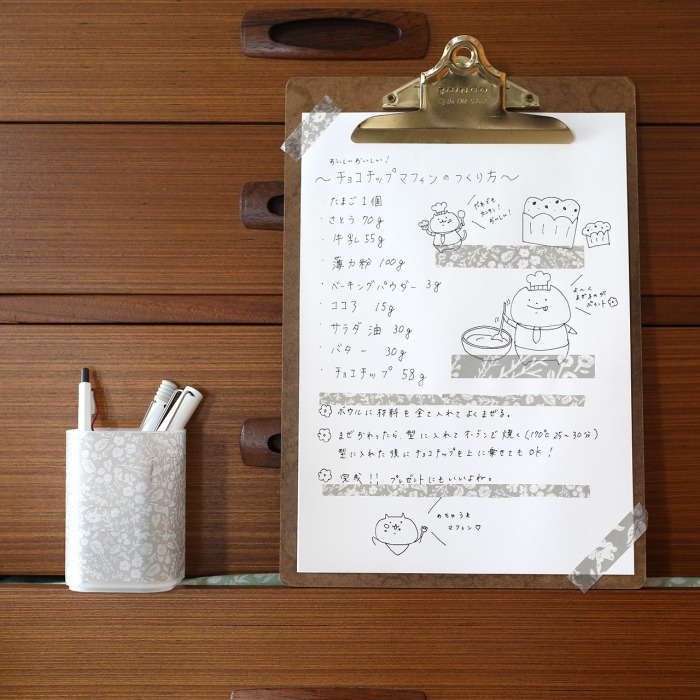 おいしいおいしい！
～チョコチップマフィンのつくり方～
・たまご 1個
・さとう 70g
・牛乳 55g
・薄力粉 100g
・ベーキングパウダー 3g
・ココア 15g
・サラダ油 30g
・バター 30g
・チョコチップ 58g
だれでも
カンタン！
おいしい！
よーく
まぜるのが
ポイント
ボウルに材料を全て入れてよくまぜる。
まぜおわったら、型に入れてオーブンで焼く(170℃ 25～30分)
型に入れた後にチョコチップを上に乗せてもOK！
完成！！ プレゼントにもいいよね。
マフィン♡